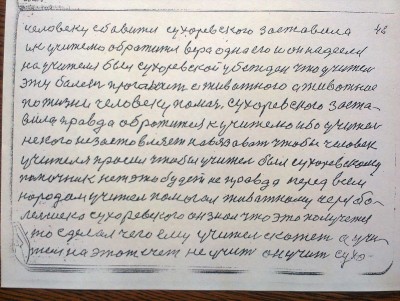 человеку сбавити сухоревского заставила 46
их учителю обратится вера одна его и он надеелся
на учителя был сухоревской убежден что учител
эту балезн прогонит с животного а животное
по жизни человеку помог. сухоревского заста-
вила правда обротится к учителю ибо учител
некого незаставляет навязоват чтобы человек
учителя просил чтобы учител был сухоревскому
помочник нет это будет не правда перед всем
народам учител помогал животному через бо-
лезнь сухоревского он знал что это получется
то сделал чего ему учител скажет а учи-
тел на этот счет не учит он учит сухо-